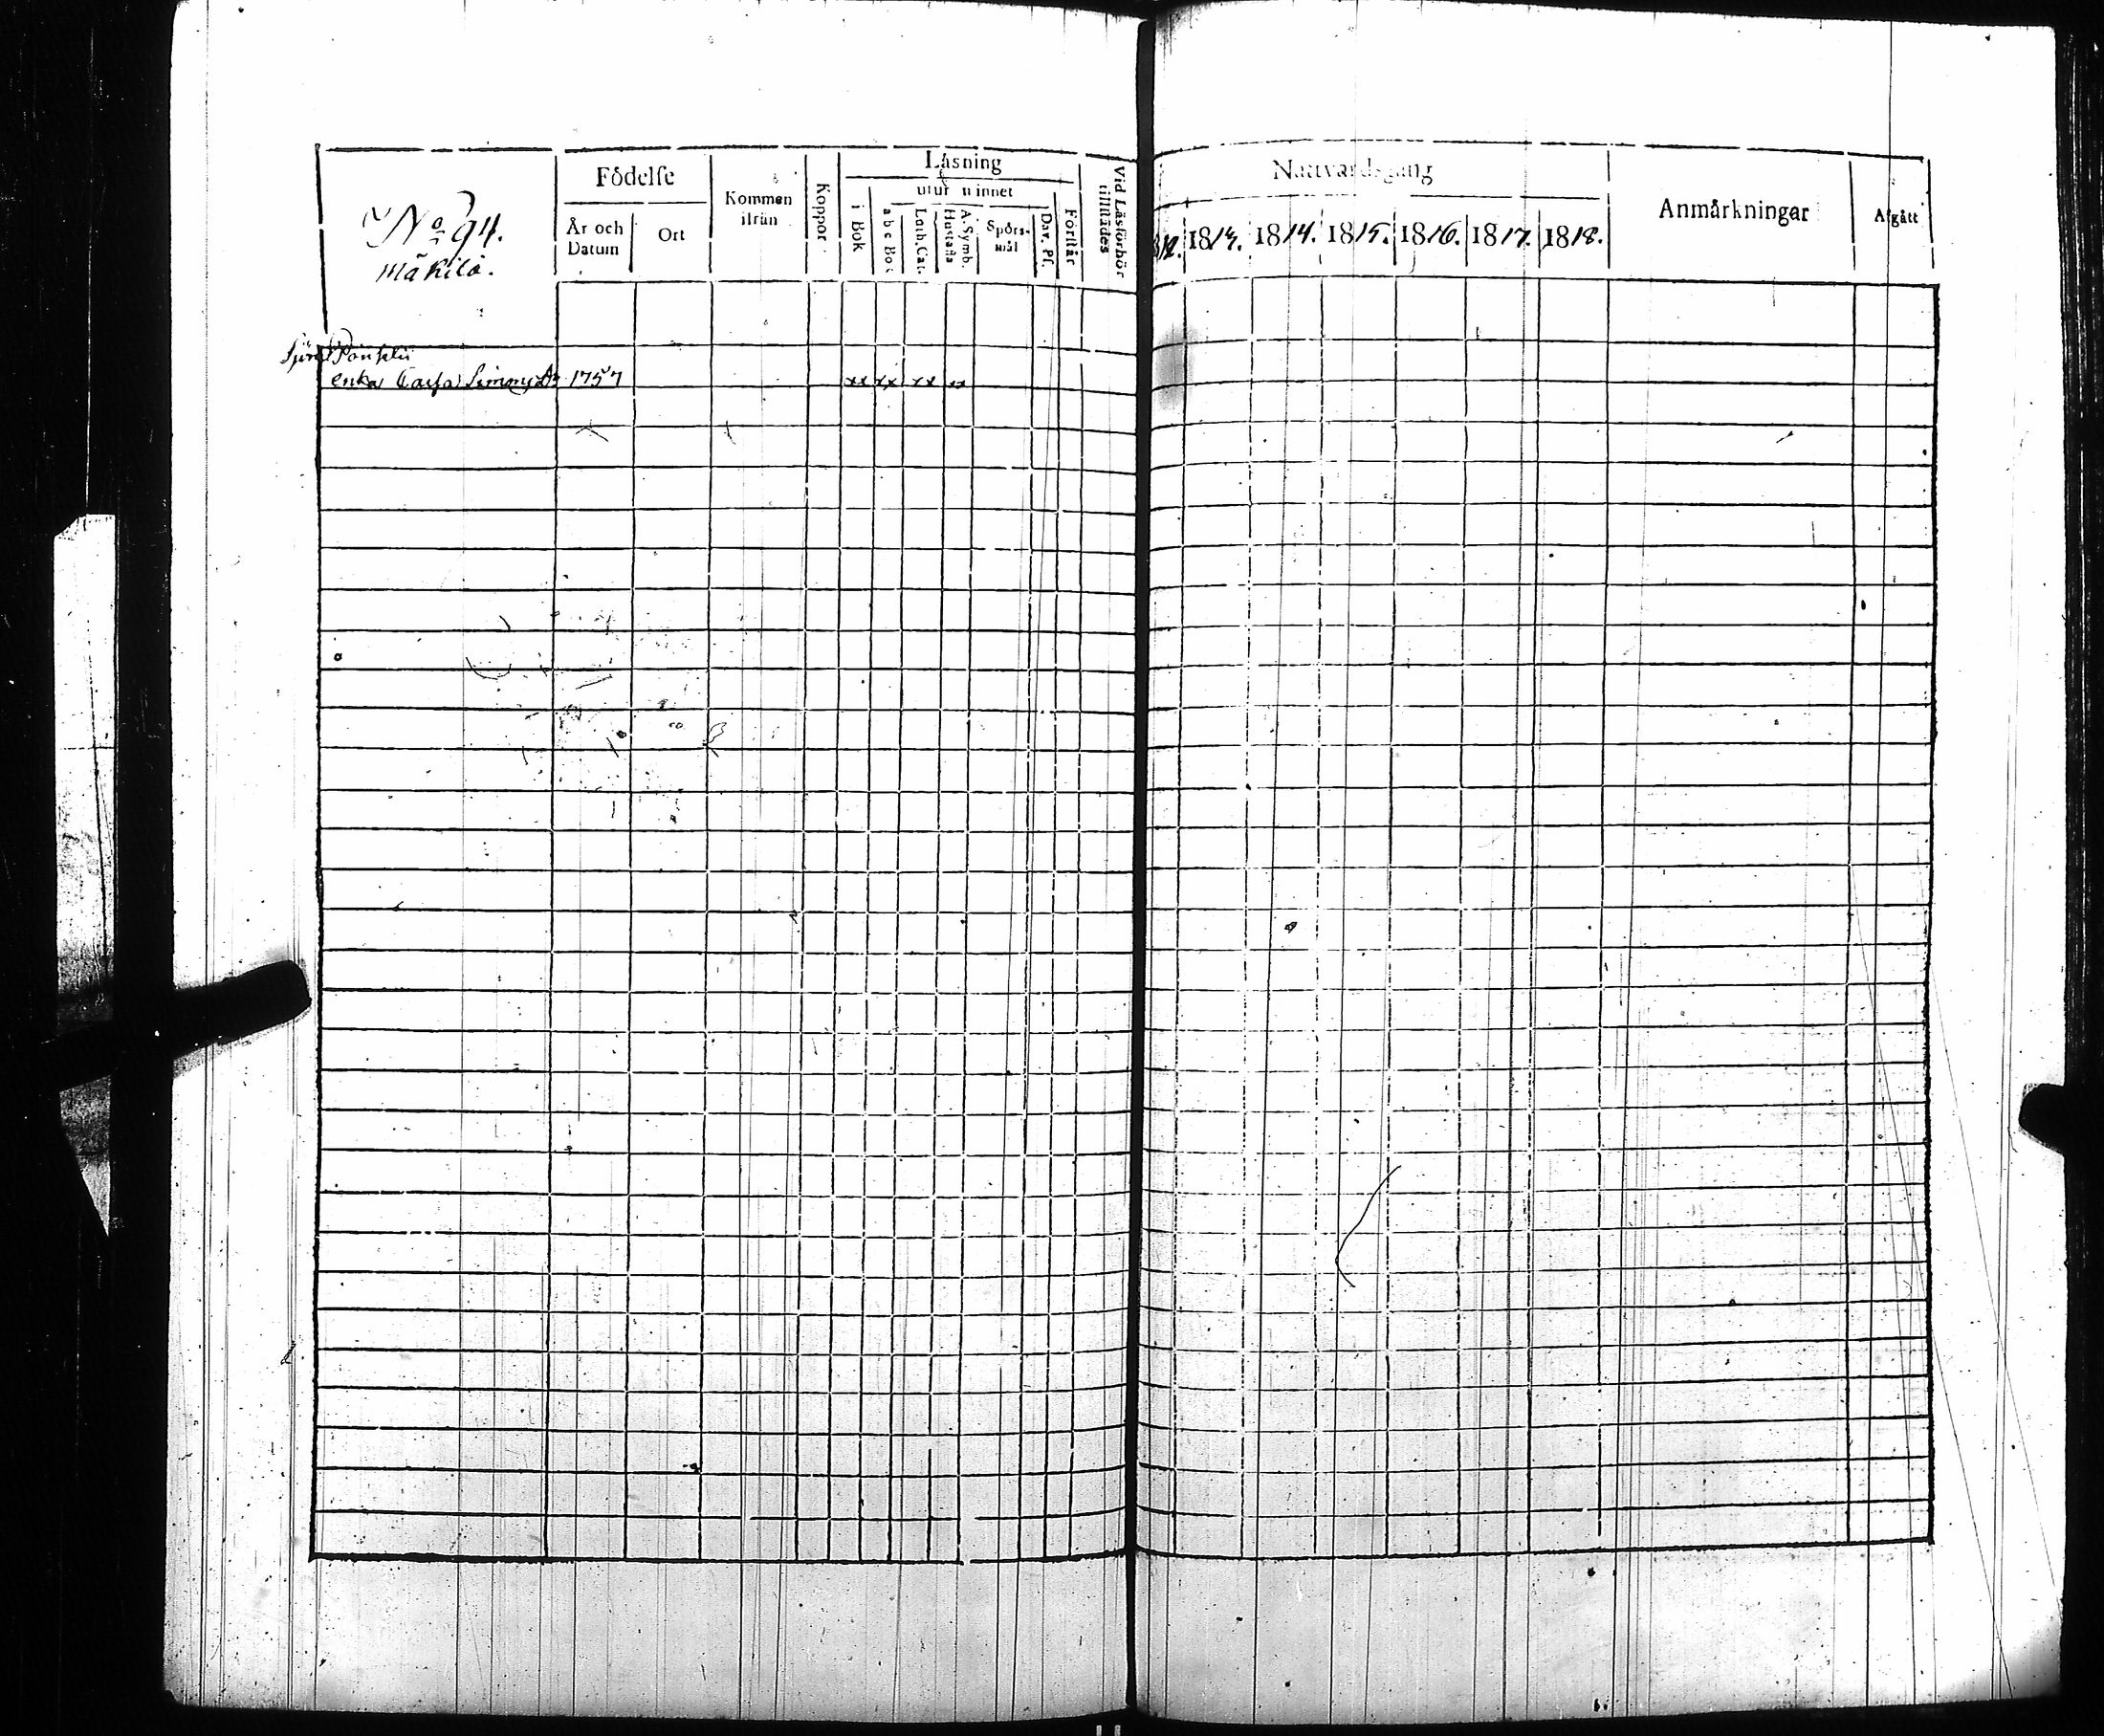 No 94.
mäkilä.
Födelse
År och Datum
Ort
Kommen ifrån
Koppor
Läsning
utur minnet
i Bok
abc Bok
Luth. Cat.
A. Symb. Hustafla
Spörs-mål
Dav. Ps.
Förstår
Vid Läsförhör tillstädes
Nattvardsgång
1813. 1814. 1815. 1816. 1817. 1818.
Anmärkningar
Afgått
enka Caisa Simonsdr 1757 xx xx xx xx